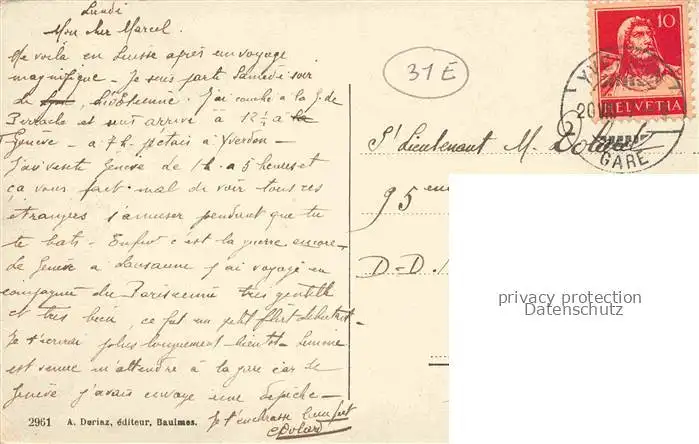 Lundi
Mon cher Marcel.
Me voilà en Suisse après un voyage
magnifique - Je suis parti Samedi soir
de St Etienne. J'ai couché à la G. de
Perrache et suis arrivé à 12 1/2 à
Genève - à 7h. j'étais à Yverdon -
J'ai visité Genève de 1h. à 5 heures et
ça vous fait mal de voir tous ces
étrangers s'amuser pendant que tu
te bats - Enfin c'est la guerre encore -
De Genève à Lausanne j'ai voyagé en
compagnie du Parisienne très gentille
et très bien, ce fut un petit flirt
Je t'écrirai plus longuement bientôt - Simone
est venue m'attendre à la gare car de
Genève j'avais envoyé une dépêche -
Je t'embrasse bien fort
Dolard
2961 A. Deriaz, éditeur, Baulmes.
31 E
10
HELVETIA
YV
20 VII
GARE
S/ Lieutenant M. Dolard
95 eme
D.-D.
privacy protection
Datenschutz